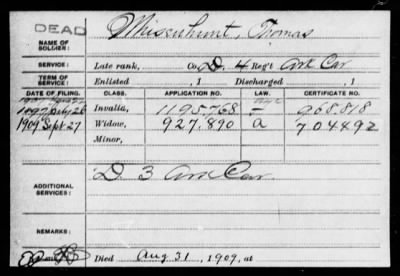 DEAD
NAME OF SOLDIER: Misenhunt, Thomas
SERVICE: Late rank, Co. D, 4 Reg't Ark Cav
TERM OF SERVICE: Enlisted , 1 Discharged , 1
DATE OF FILING. CLASS. APPLICATION NO. LAW. CERTIFICATE NO.
1897 July 28 Invalid, 1195768 968.818
1909 Sept 27 Widow, 927.890 a 704492
Minor,
ADDITIONAL SERVICES: D 3 Ark Cav
REMARKS:
Died Aug 31, 1909, at